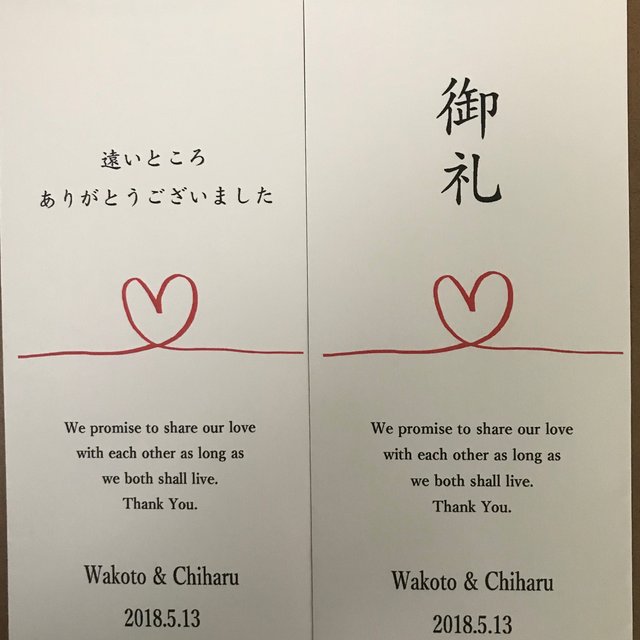 遠いところ
ありがとうございました
We promise to share our love
with each other as long as
we both shall live.
Thank You.
Wakoto & Chiharu
2018.5.13
御礼
We promise to share our love
with each other as long as
we both shall live.
Thank You.
Wakoto & Chiharu
2018.5.13